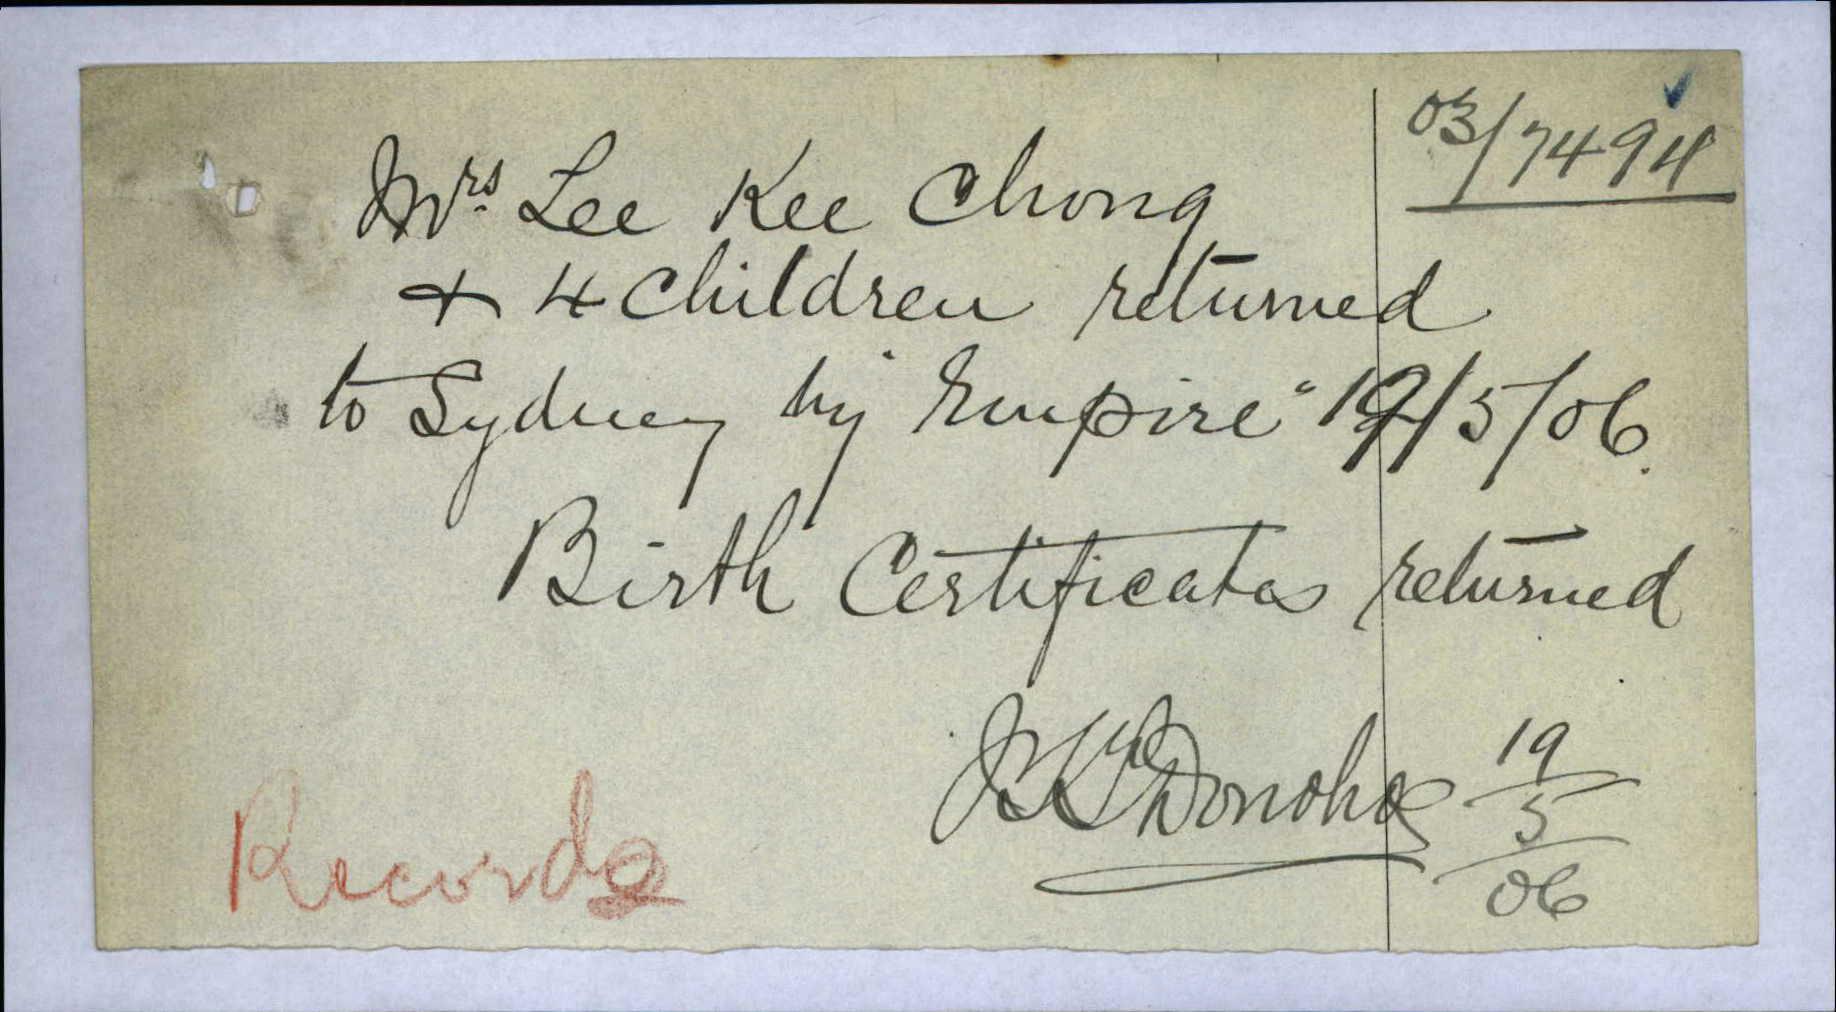 03/7494
Mrs. Lee Kee Chong
+ 4 Children returned
to Sydney by "Empire" 19/5/06.
Birth Certificates returned
J T T Donohoe 19/5/06
Records